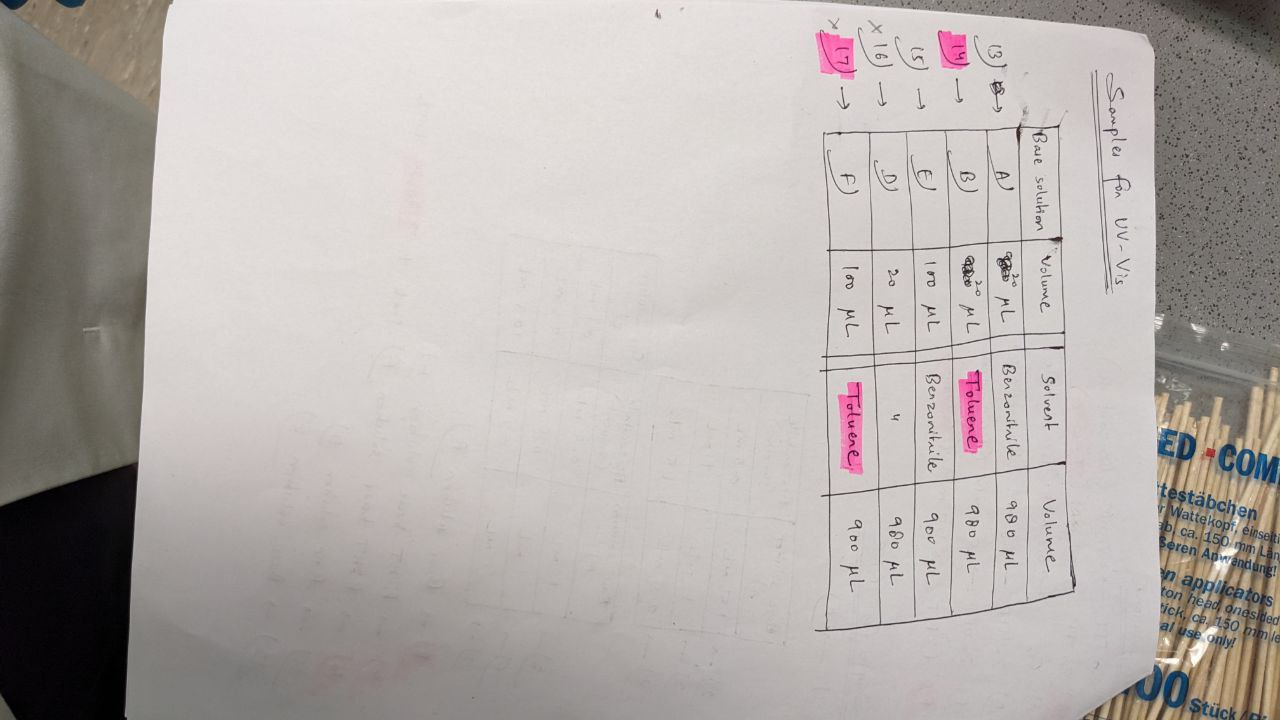 ED • COM
testäbchen
Wattekopf, einseit
ca. 150 mm Län
Anwendung!
applicators
head, onesided
ca. 150 mm
use only!
00 Stück
Samples for UV-Vis
Base solution Volume Solvent Volume
13) → A) 20 µL Benzonitrile 980 µL
14) → B) 20 µL Toluene 980 µL
15) → E) 100 µL Benzonitrile 900 µL
× 16) → D) 20 µL " 980 µL
× 17) → F) 100 µL Toluene 900 µL